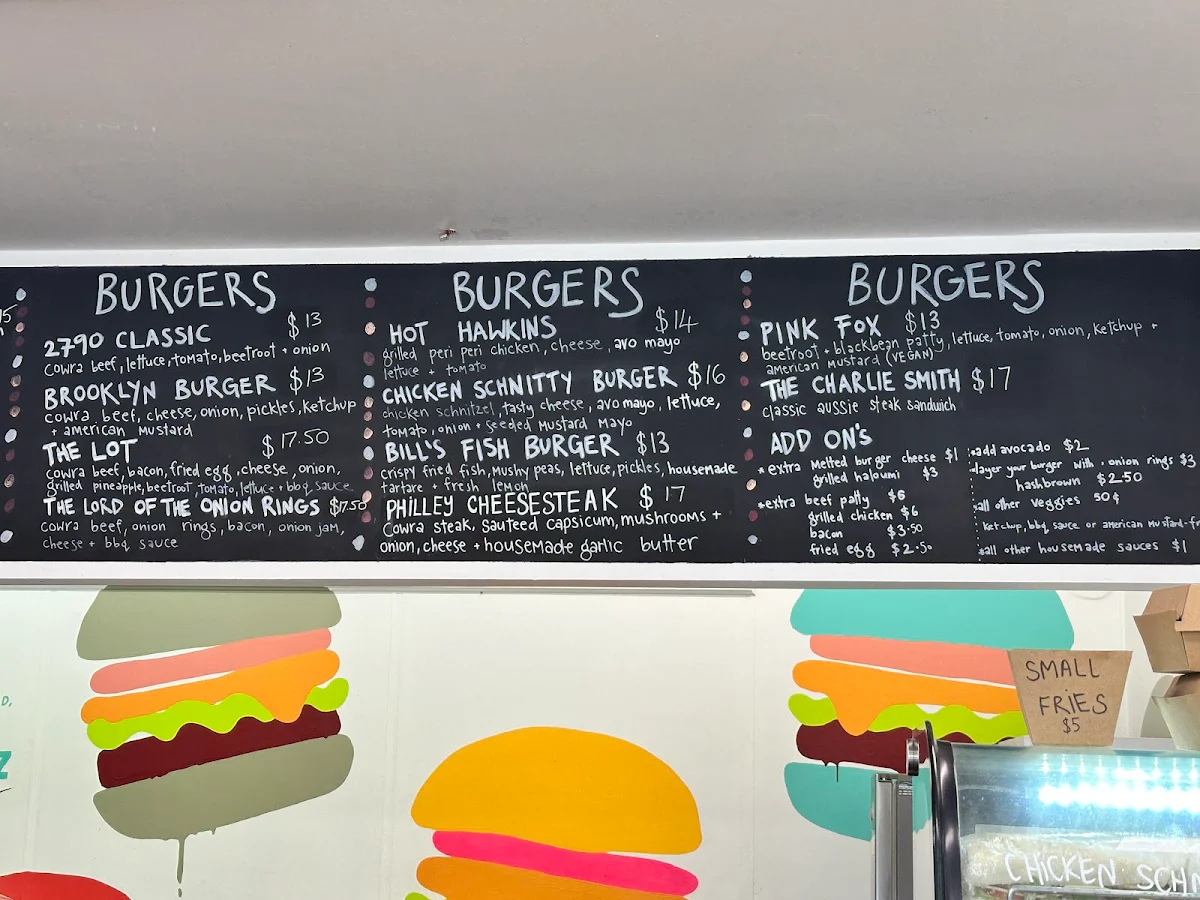 BURGERS
2790 CLASSIC $13
cowra beef, lettuce, tomato, beetroot + onion
BROOKLYN BURGER $13
cowra beef, cheese, onion, pickles, ketchup
+ american mustard
THE LOT $17.50
cowra beef, bacon, fried egg, cheese, onion,
grilled pineapple, beetroot, tomato, lettuce + bbq sauce
THE LORD OF THE ONION RINGS $17.50
cowra beef, onion rings, bacon, onion jam,
cheese + bbq sauce
BURGERS
HOT HAWKINS $14
grilled peri peri chicken, cheese, avo mayo
lettuce + tomato
CHICKEN SCHNITTY BURGER $16
chicken schnitzel, tasty cheese, avo mayo, lettuce,
tomato, onion + seeded mustard mayo
BILL'S FISH BURGER $13
crispy fried fish, mushy peas, lettuce, pickles, housemade
tartare + fresh lemon
PHILLEY CHEESESTEAK $17
Cowra steak, sauteed capsicum, mushrooms +
onion, cheese + housemade garlic butter
BURGERS
PINK FOX $13
beetroot + blackbean patty, lettuce, tomato, onion, ketchup +
american mustard (VEGAN)
THE CHARLIE SMITH $17
classic aussie steak sandwich
ADD ON'S
*extra melted burger cheese $1
grilled haloumi $3
*extra beef patty $6
grilled chicken $6
bacon $3.50
fried egg $2.50
*add avocado $2
*layer your burger with . onion rings $3
hashbrown $2.50
*all other veggies 50¢
ketchup, bbq sauce or american mustard-f
*all other housemade sauces $1
SMALL
FRIES
$5
D,
Z
CHICKEN SCHN